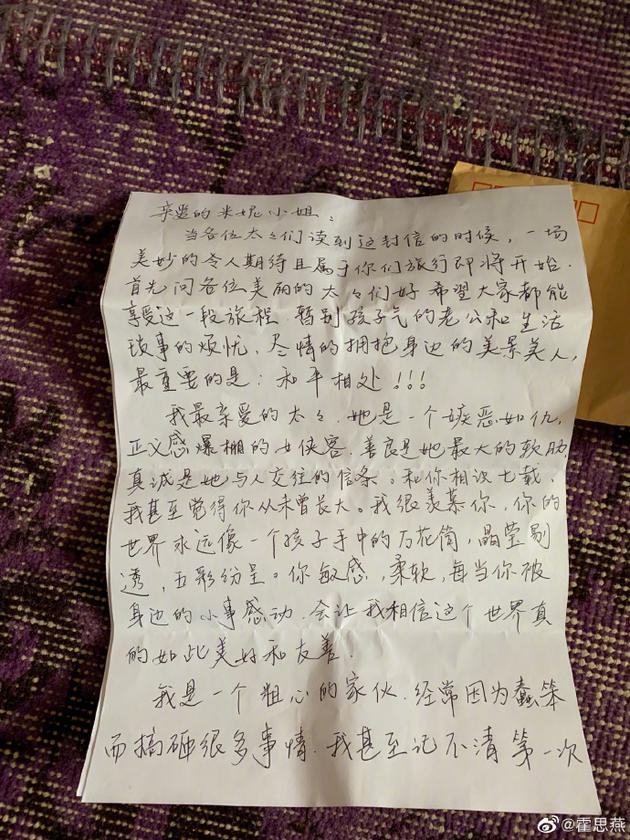 亲爱的米妮小姐：
当各位太太们读到这封信的时候，一场
美妙的令人期待且属于你们旅行即将开始.
首先问各位美丽的太々们好 希望大家都能
享受这一段旅程.暂别孩子气的老公和生活
琐事的烦忧，尽情的拥抱身边的美景美人，
最重要的是：和平相处!!!
我最亲爱的太々.她是一个嫉恶如仇，
正义感爆棚的女侠客.善良是她最大的软肋
真诚是她与人交往的信条。和你相识七载，
我甚至觉得你从未曾长大。我很羡慕你，你的
世界永远像一个孩子手中的万花筒，晶莹剔
透，五彩纷呈。你敏感，柔软，每当你被
身边的小事感动.会让我相信这个世界真
的如此美好和友善.
我是一个粗心的家伙.经常因为蠢笨
而搞砸很多事情.我甚至记不清第一次
@霍思燕